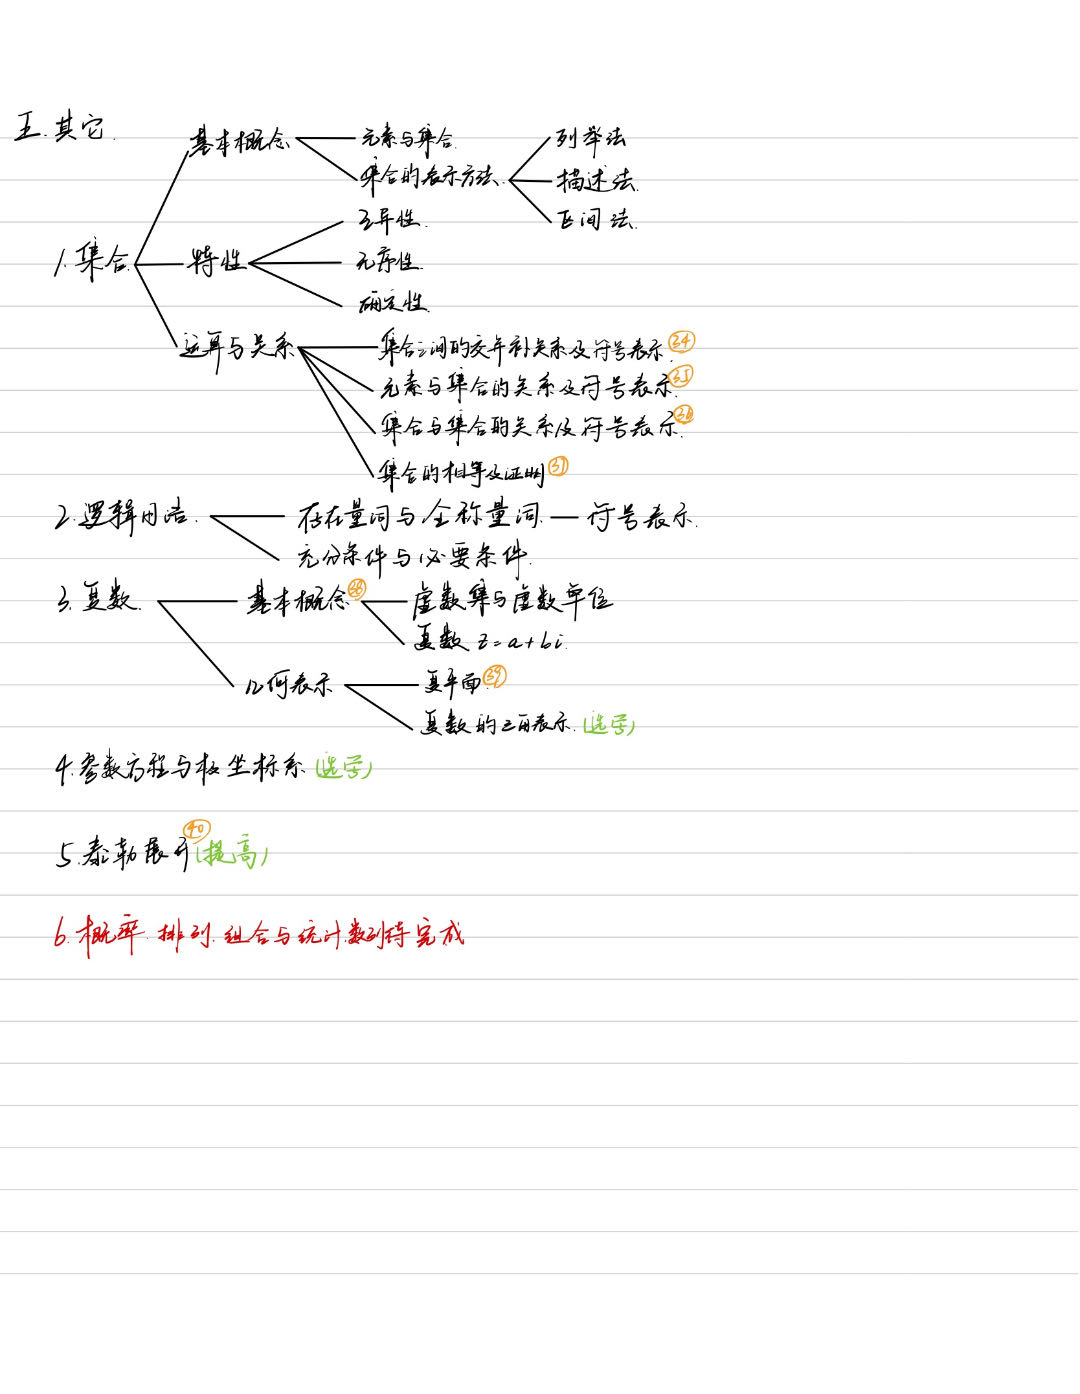 五.其它.
基本概念
元素与集合.
列举法
集合的表示方法.
描述法.
区间法.
1.集合.
特性
互异性.
无序性.
确定性.
运算与关系
集合之间的交并补关系及符号表示.㉞
元素与集合的关系及符号表示.㉟
集合与集合的关系及符号表示.㊱
集合的相等及证明㊲
2.逻辑用语.
存在量词与全称量词.—符号表示.
充分条件与必要条件.
3.复数.
基本概念㊳
虚数集与虚数单位
复数 z=a+bi.
几何表示
复平面.㊴
复数的三角表示.(选学)
4.参数方程与极坐标系(选学)
5.泰勒展开㊵(提高)
6.概率.排列.组合与统计.数列待完成